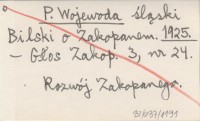 P. Wojewoda śląski
Bilski o Zakopanem. 1925.
– Głos Zakop. 3, nr 24.
Rozwój Zakopanego.